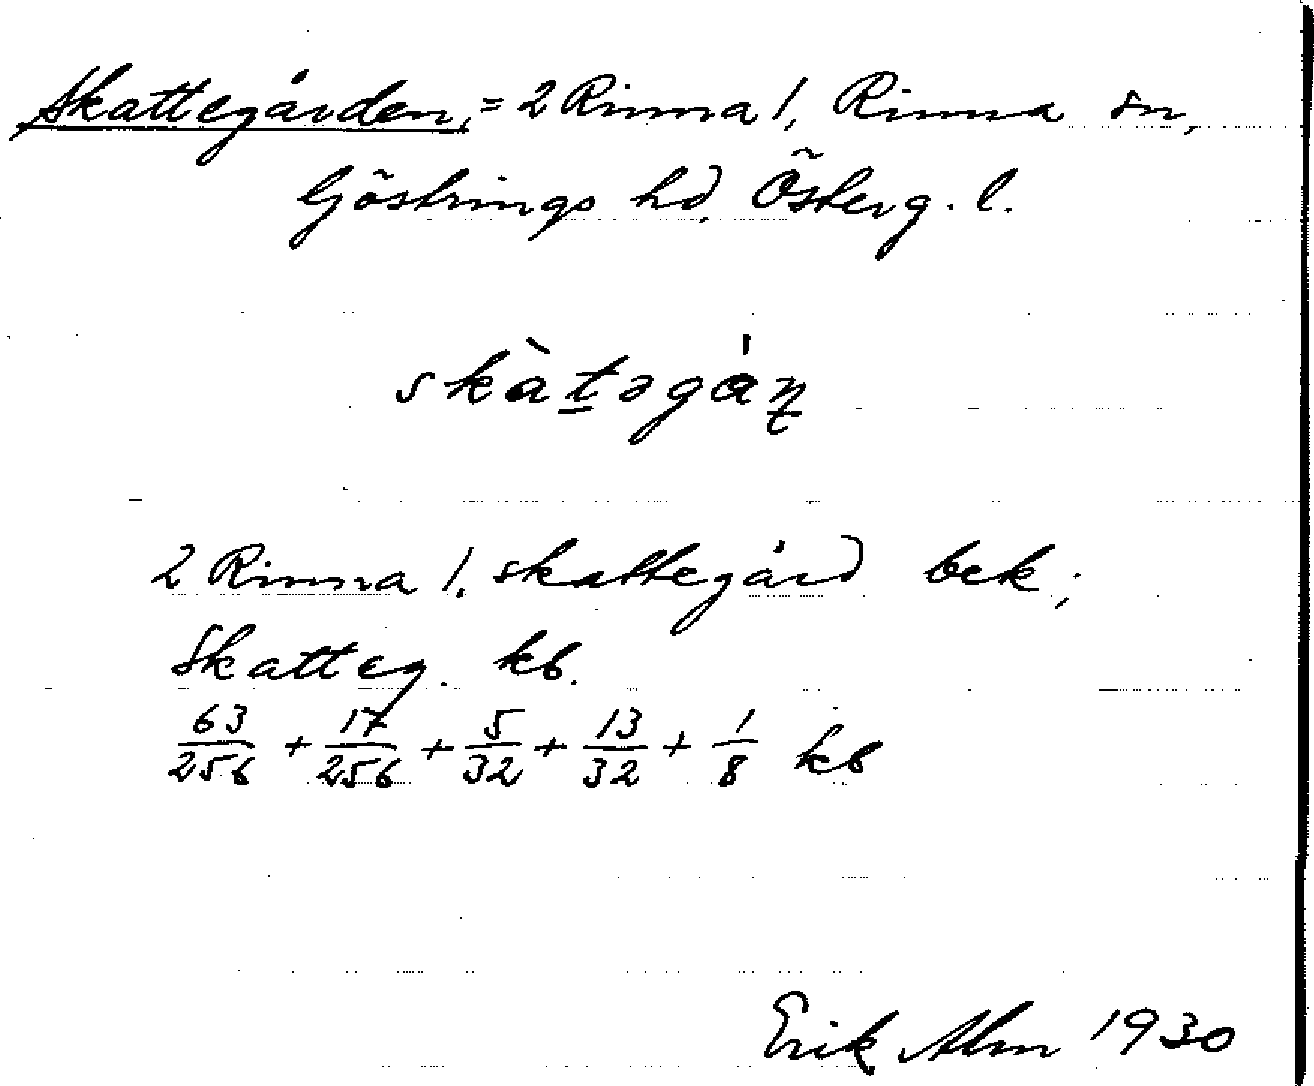 Skattegården, = 2 Rinna 1, Rinna sn,
Göstrings hd, Österg. l.
skàt̲əgán̲
2 Rinna 1, skattegård bek;
Skatteg. kb.
63/256 + 17/256 + 5/32 + 13/32 + 1/8 kb
Erik Alm 1930